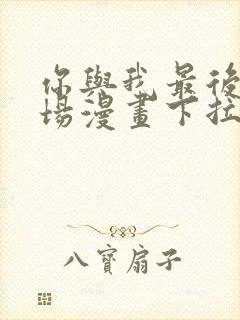 你與我最後
場漫畫下拉
八寶扇子